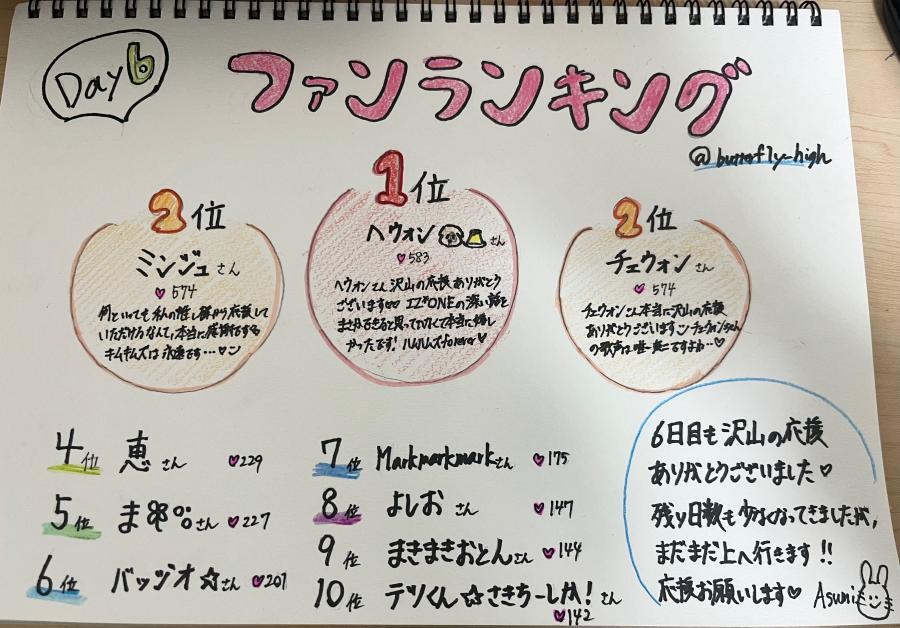 Day6
ファンランキング
@butterfly-high
1位
ヘウォン さん
583
ヘウォンさん 沢山の応援 ありがとう
ございます♡♡ IZ*ONEの深い話を
まさかできると思ってなくて本当に嬉し
かったです! ハムハムズforever♥
2位
ミンジュ さん
♥574
何といっても 私の推し様から応援して
いただけるなんて、本当に感謝すぎる
キムキムズは 永遠です…♡
2位
チェウォン さん
♥574
チェウォンさん本当に沢山の応援
ありがとうございます チェウォンちゃん
の歌声は唯一無二ですよね…♡
4位 恵 さん ♥229
5位 ま さん ♥227
6位 バッジオ☆さん ♥201
7位 Markmarkmarkさん ♥175
8位 よしお さん ♥147
9位 まきまきおとんさん ♥144
10位 テツくん☆さきちーしか! さん
♥142
6日目も 沢山の応援
ありがとうございました♡
残り日数も少なくなってきましたが、
まだまだ上へ行きます!!
応援お願いします♡ Asumi